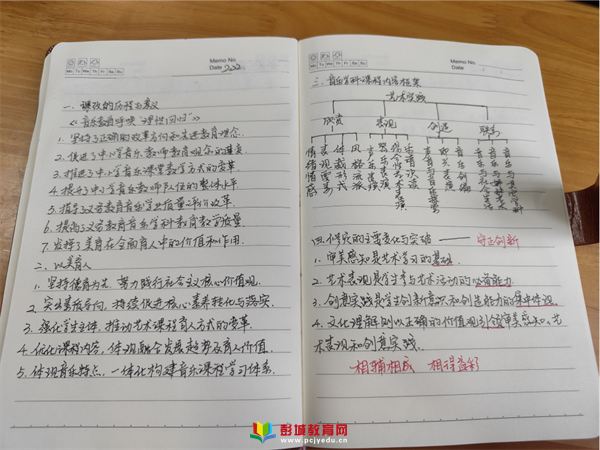 Memo No.
Date 2022
Mo Tu We Th Fr Sa Su
一、课改的历程与意义
《音乐教育呼唤"理性回归"》
1. 坚持了正确的改革方向和先进教育理念.
2. 促进了中小学音乐教师教育观念的更新
3. 推进了中小学音乐课堂教学方式的变革
4. 提升了中小学音乐教师队伍的整体水平
5. 指导了义务教育音乐学业质量评价改革
6. 提高了义务教育音乐学科教育教学质量.
7. 发挥了美育在全面育人中的价值和作用.
二、以美育人
1. 坚持德育为先, 努力践行社会主义核心价值观.
2. 突出素养导向, 持续促进核心素养转化与落实.
3. 强化学生主体, 推动艺术课程育人方式的变革.
4. 优化课程内容, 体现融合发展趋势及育人价值.
5. 体现音乐特点, 一体化构建音乐课程学习体系.
Memo No.
Date
Mo Tu We Th Fr Sa Su
三、音乐学科课程内容框架
艺术实践
欣赏 表现 创造 联系
四、课程的主要变化与突破 —— 守正创新
1. 审美感知是艺术学习的基础.
2. 艺术表现是学生参与艺术活动的必备能力.
3. 创意实践是学生创新意识和创造能力的集中体现.
4. 文化理解则以正确的价值观引领审美感知、艺
术表现和创意实践.
相辅相成 相得益彰
彭城教育网
www.pcjyedu.cn